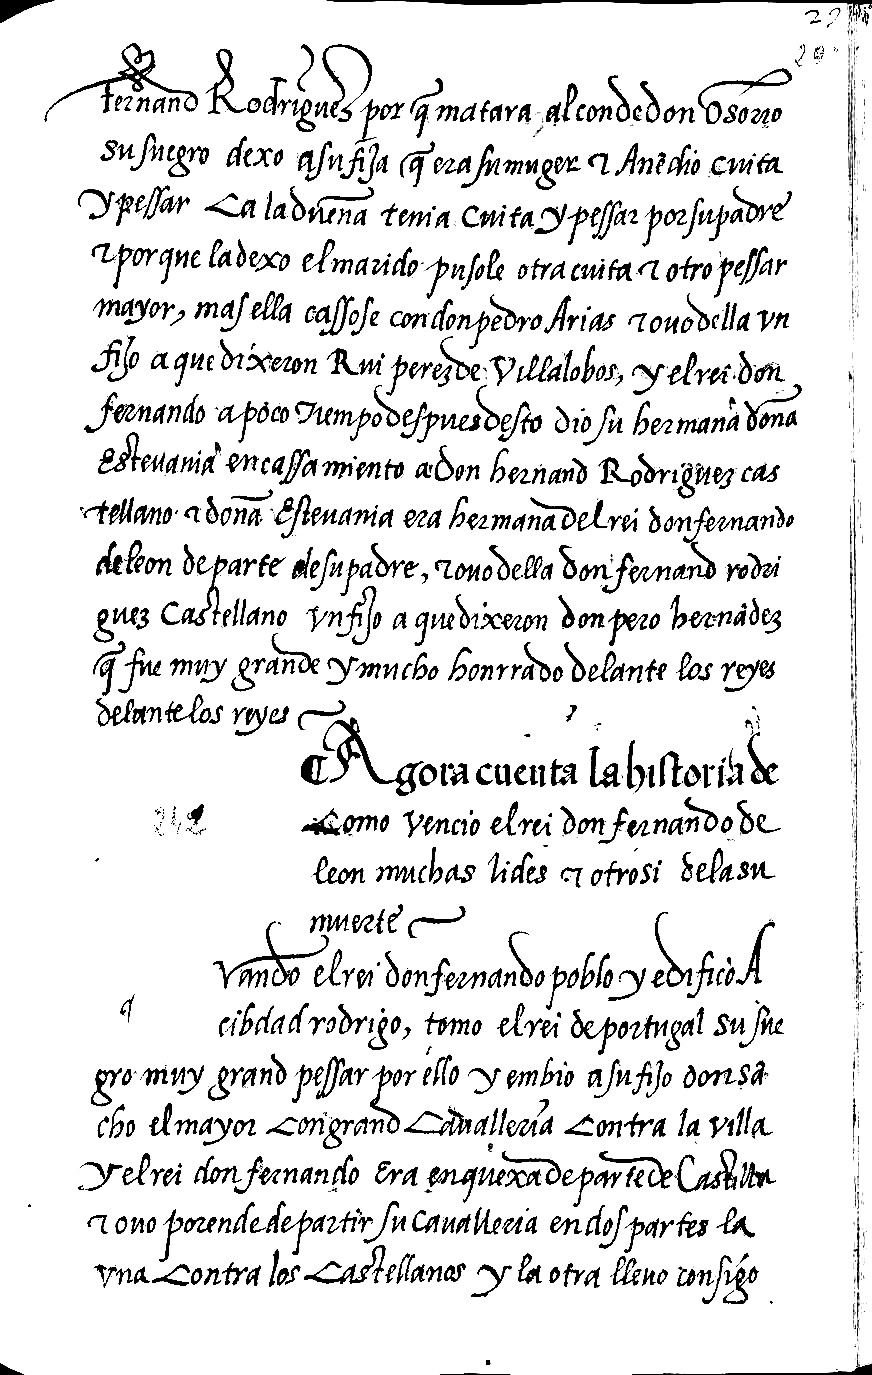 29
29
fernand Rodriguez por q̃ matara al conde don Osorio
su suegro dexo a su fija q̃ era su muger τ Anẽdio cuita
y pessar Ca la dueña tenia cuita y pessar por su padre
τ por que la dexo el marido pusole otra cuita τ otro pessar
mayor, mas ella cassose con don pedro Arias τ ovo della vn
fijo a que dixeron Rui perez de Villalobos, y el rei don
fernando a poco Tiempo despues desto dio su hermana doña
Estevania en cassamiento a don hernand Rodriguez cas
tellano τ doña Estevania era hermana del rei don fernando
de leon de parte de su padre, τ ovo della don fernand rodri
guez Castellano vn fijo a que dixeron don pero hernãdez
q̃ fue muy grande y mucho honrrado delante los reyes
delante los reyes
Agora cuenta la historia de
Como vencio el rei don fernando de
leon muchas lides τ otrosi de la su
muerte
vando el rei don fernando poblo y edifico A
cibdad rodrigo, tomo el rei de portugal su sue
gro muy grand pessar por ello y embio a su fijo don sã
cho el mayor Con grand Cavalleria Contra la villa
y el rei don fernando Era en quexa de parte de Castilla
τ ovo porende departir su cavalleria en dos partes la
vna Contra los Castellanos y la otra llevo consigo